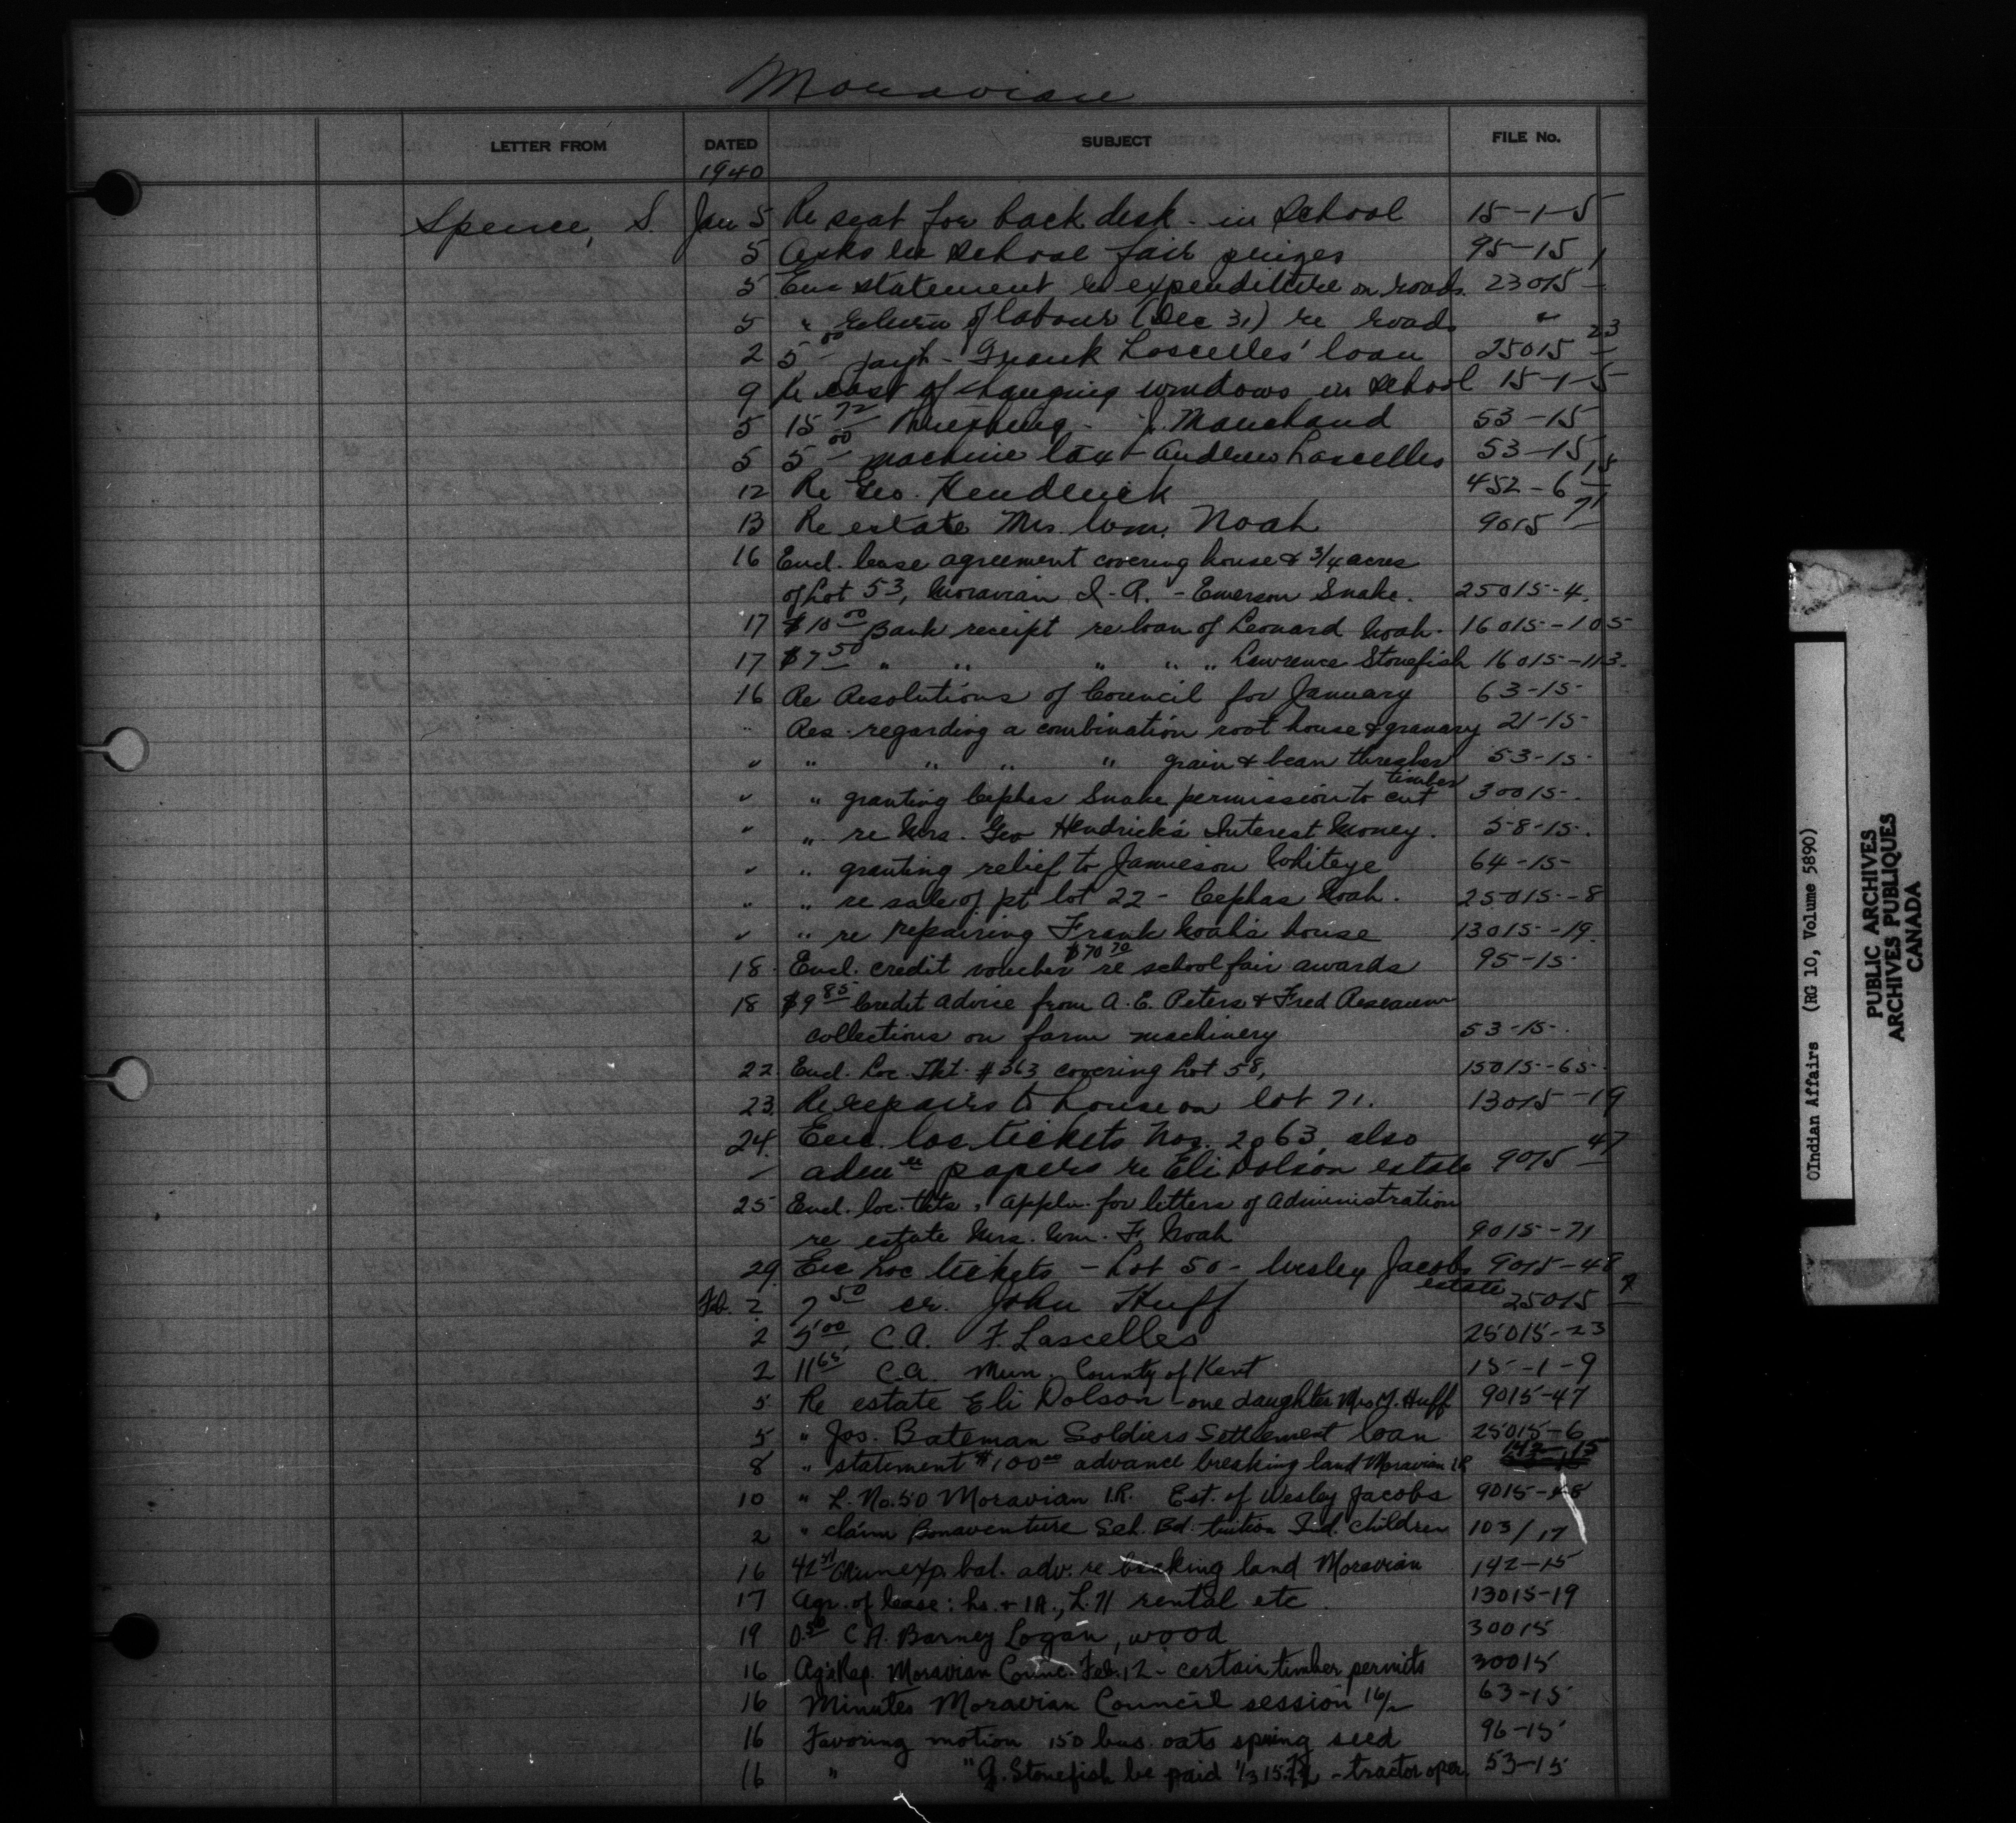 Moravian
LETTER FROM DATED SUBJECT FILE No.
1940
Spence, S. Jan 5 Re seat for back desk - in School 15-1-5
5 Asks re School fair prizes 95-15
5 Enc statement re expenditure on roads. 23015
5 " return of labour (Dec 31) re roads "
2 5 00 payt - Frank Lascelles' loan 25015 23
9 Re cost of changing windows in School 15-1-5
5 15 72 Threshing - J. Manchand 53-15
5 5 00 machine tax - Andrew Lascelles 53-15
12 Re Geo. Hendrick 452-6 15
13 Re estate Mrs Wm. Noah 9015 71
16 Encl. lease agreement covering house & 3/4 acres
of Lot 53, Moravian I.R. - Emerson Snake. 25015-4.
17 $10 00 Bank receipt re loan of Leonard Noah. 16015-105
17 $7 50 " " " " " Lawrence Stonefish 16015-113.
16 Re Resolutions of Council for January 63-15-
" Res. regarding a combination root house & granary 21-15-
" " " " " grain & bean thresher 53-15-
" " granting Cephas Snake permission to cut timber 30015-.
" " re Mrs. Geo Hendrick's Interest Money. 58-15-.
" " granting relief to Jamieson Whiteye 64-15-
" " re sale of pt lot 22 - Cephas Noah. 25015-8
" " re repairing Frank Noah's house 13015-19.
18. Encl. credit voucher $70 70 re school fair awards 95-15-
18 $9 85 Credit advice from A. E. Peters & Fred
collections on farm machinery 53-15-.
22 Encl. Loc. Tkt. #363 covering Lot 58, 15015-65-
23. Re repairs to house on lot 71. 13015-19
24. Enc. loc tickets Nos. 2 63, also
papers re Eli Dolson estate 9015 47
25 Encl. loc. tkts, Appln. for letters of Administration
re estate Mrs. Wm. F. Noah 9015-71
29. Enc loc tickets - Lot 50 - Wesley Jacobs estate 9015-48
Feb. 2 7 50 cr. John Huff 25015 7
2 5 00 C.A. F. Lascelles 25015-23
2 11 65 C.A. Mun. County of Kent 15-1-9
5 Re estate Eli Dolson - one daughter Mrs Y. Huff 9015-47
5 " Jos. Bateman Soldiers Settlement loan 25015-6
8 " statement $100 00 advance breaking land Moravian I.R 142-15
10 " L. No. 50 Moravian I.R. Est. of Wesley Jacobs 9015-48
2 " claim Bonaventure Sch. Bd. tuition Ind. Children 103/17
16 exp. bal. adv. re breaking land Moravian 142-15
17 Agr. of lease: hs. & 1A., L. 71 rental etc. 13015-19
19 0.50 C A. Barney Logan, wood 30015
16 Ag's Rep. Moravian Counc. Feb. 12 - certain timber permits 30015
16 Minutes Moravian Council session 16/2 63-15
16 Favoring motion 150 bus. oats spring seed 96-15
16 " " G. Stonefish be paid 1/3 15.72 - tractor oper. 53-15
OIndian Affairs (RG 10, Volume 5890)
PUBLIC ARCHIVES
ARCHIVES PUBLIQUES
CANADA